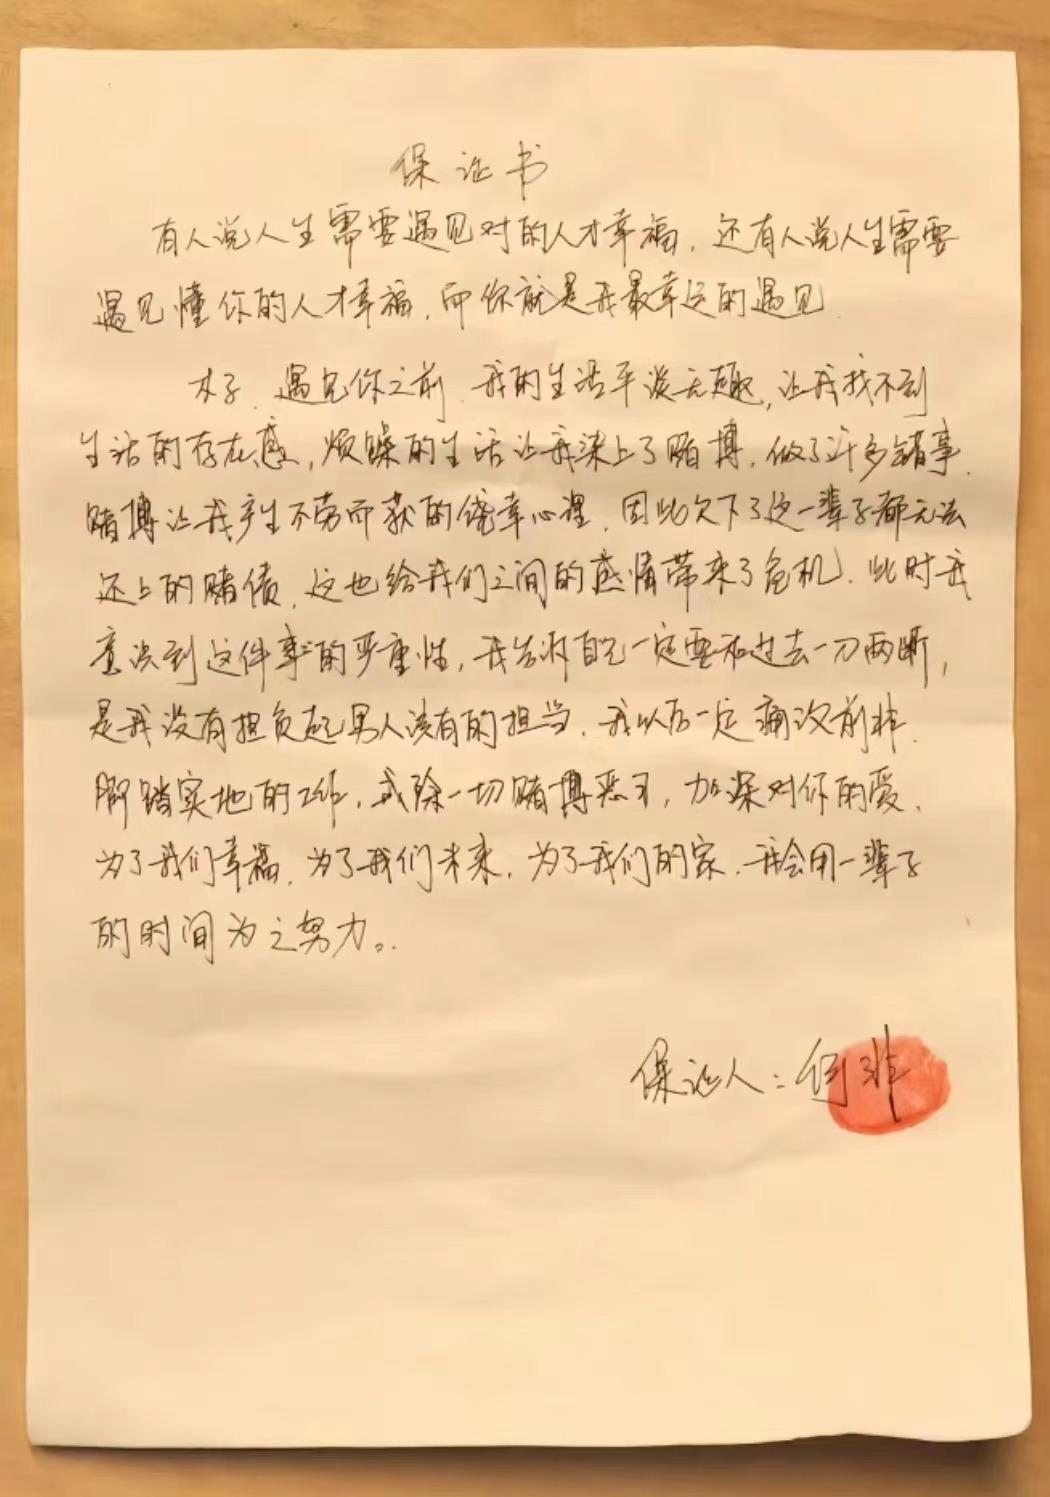 保证书
有人说人生需要遇见对的人才幸福，还有人说人生需要
遇见懂你的人才幸福，而你就是我最幸运的遇见
木子，遇见你之前，我的生活平淡无趣，让我找不到
生活的存在感，烦躁的生活让我染上了赌博，做了许多错事，
赌博让我产生不劳而获的侥幸心理，因此欠下了这一辈子都无法
还上的赌债，这也给我们之间的感情带来了危机，此时我
意识到这件事的严重性，我告诉自己一定要和过去一刀两断，
是我没有担负起男人该有的担当，我以后一定痛改前非，
脚踏实地的工作，戒除一切赌博恶习，加深对你的爱，
为了我们幸福，为了我们未来，为了我们的家，我会用一辈子
的时间为之努力。
保证人：何非